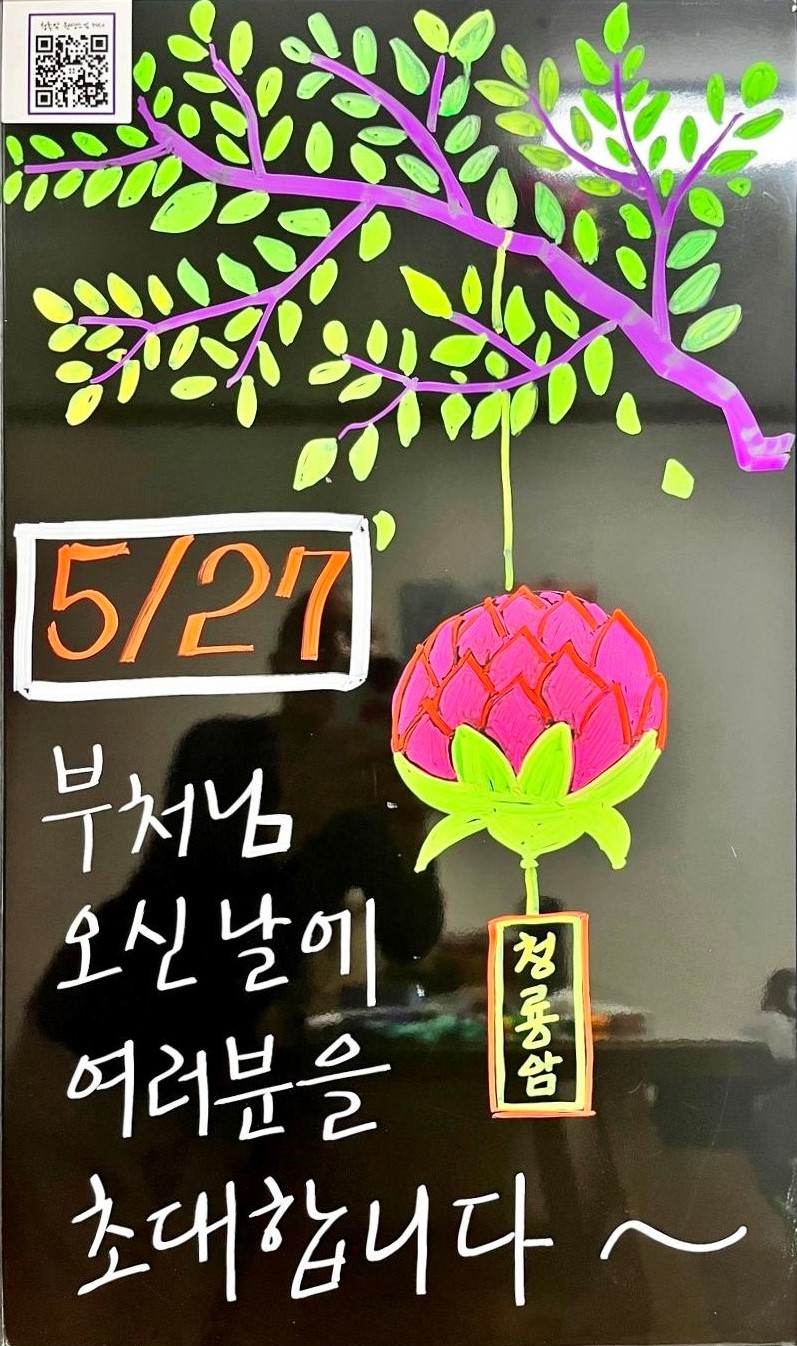 5/27
부처님
오신날에
여러분을
초대합니다~
청룡암